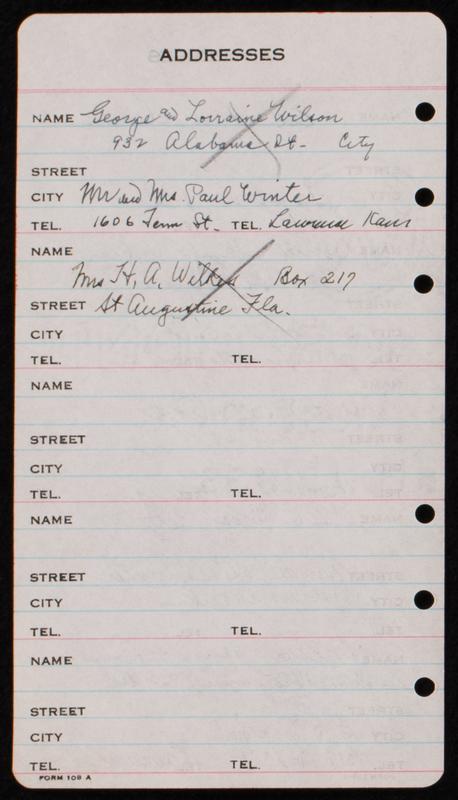 ADDRESSES
NAME George and Lorraine Wilson
932 Alabama St. City
STREET
CITY Mr and Mrs. Paul Winter
TEL. 1606 Tenn St. TEL. Lawrence Kans
NAME
Mrs H. A. Wilkes Box 217
STREET St Augustine Fla.
CITY
TEL. TEL.
NAME
STREET
CITY
TEL. TEL.
NAME
STREET
CITY
TEL. TEL.
NAME
STREET
CITY
TEL. TEL.
FORM 109 A